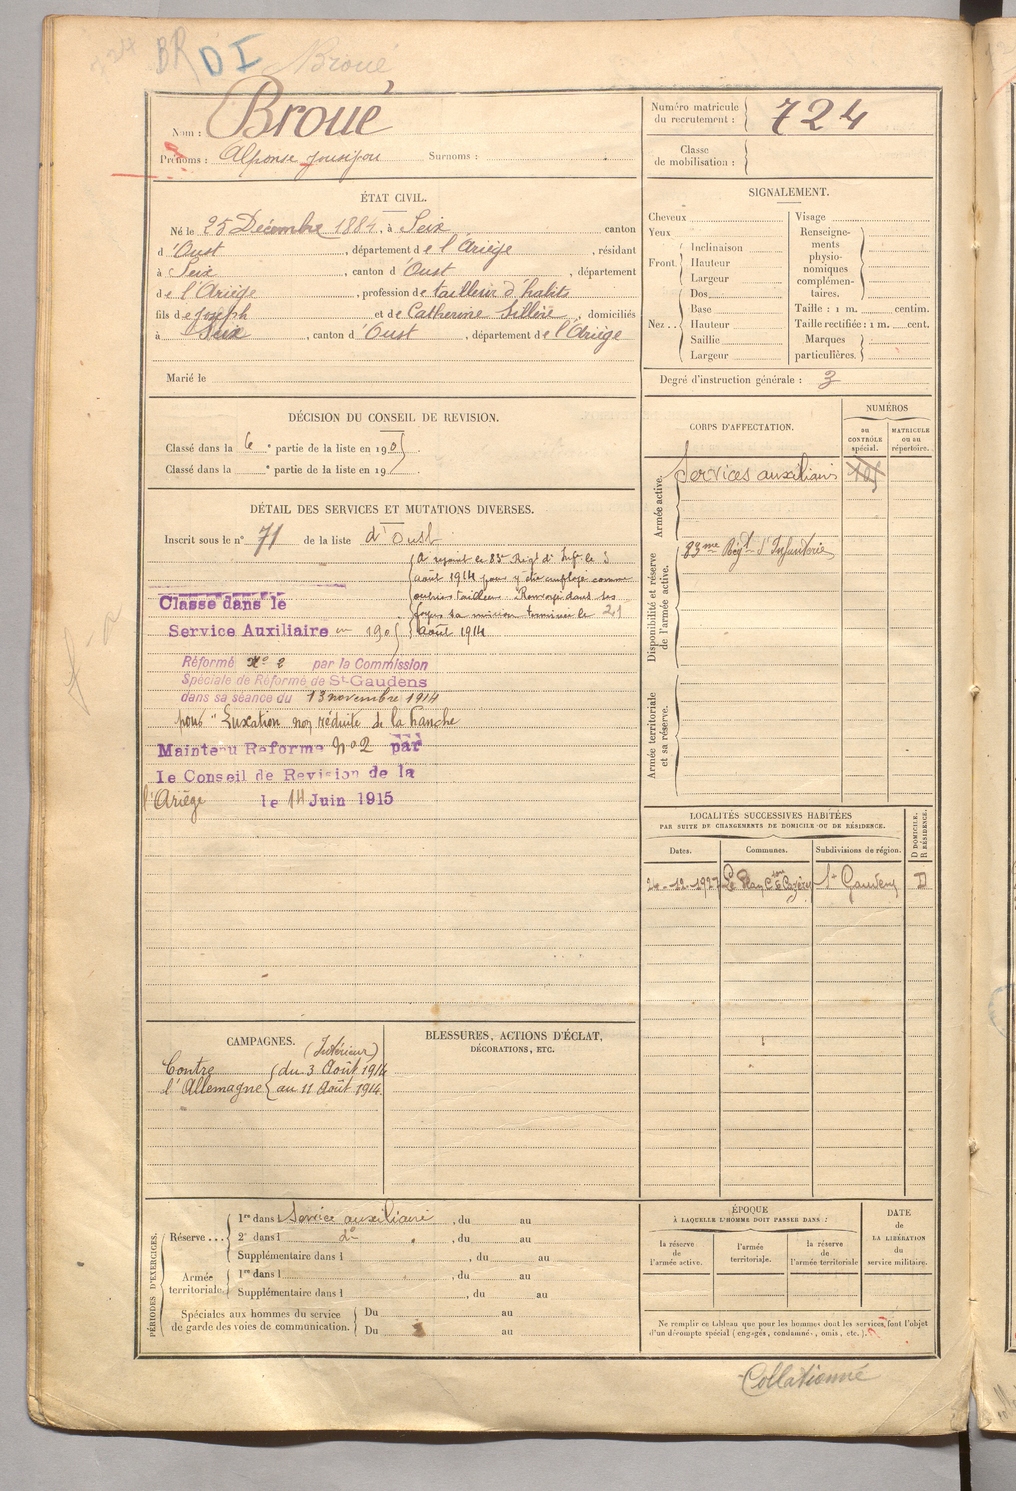 724 BR DI Broué
Nom : Broué
Prénoms : Alponse Jousipou Surnoms :
Numéro matricule
du recrutement : 724
Classe
de mobilisation :
ÉTAT CIVIL.
Né le 25 Décembre 1884, à Seix canton
d'Oust, département de l'Ariège, résidant
à Seix, canton d'Oust, département
de l'Ariège, profession de tailleur d'habits
fils de Joseph et de Catherine Sillère, domiciliés
à Seix, canton d'Oust, département de l'Ariège
Marié le
SIGNALEMENT.
Cheveux
Yeux
Front. Inclinaison
Hauteur
Largeur
Nez. Dos
Base
Hauteur
Saillie
Largeur
Visage
Renseigne-
ments
physio-
nomiques
complémen-
taires.
Taille : 1 m. centim.
Taille rectifiée : 1 m. cent.
Marques
particulières.
Degré d'instruction générale : 3
DÉCISION DU CONSEIL DE REVISION.
Classé dans la 6e partie de la liste en 1905.
Classé dans la e partie de la liste en 19 .
DÉTAIL DES SERVICES ET MUTATIONS DIVERSES.
Inscrit sous le n° 71 de la liste d'Oust
A rejoint le 83e Régt d'Inf. le 3
août 1914 pour y être employé comme
ouvrier tailleur. Renvoyé dans ses
foyers sa mission terminée le 21
août 1914
Classé dans le
Service Auxiliaire en 1905
Réformé N° 2 par la Commission
Spéciale de Réforme de St-Gaudens
dans sa séance du 13 novembre 1914
pour "Luxation non réduite de la hanche
Maintenu Réformé n°2 par
le Conseil de Revision de la
l'Ariège le 14 Juin 1915
CORPS D'AFFECTATION.
NUMÉROS
au
CONTRÔLE
spécial.
MATRICULE
ou au
répertoire.
Armée active.
Services auxiliaires 105
Disponibilité et réserve
de l'armée active.
83me Régt d'Infanterie
Armée territoriale
et sa réserve.
LOCALITÉS SUCCESSIVES HABITÉES
PAR SUITE DE CHANGEMENTS DE DOMICILE OU DE RÉSIDENCE.
Dates. Communes. Subdivisions de région. D DOMICILE. R RÉSIDENCE.
-12-1927 Le Plan Cton Cazères St Gaudens D
CAMPAGNES.
(Intérieur)
Contre du 3 Août 1914
l'Allemagne au 11 Août 1914.
BLESSURES, ACTIONS D'ÉCLAT,
DÉCORATIONS, ETC.
PÉRIODES D'EXERCICES.
Réserve ... 1re dans l Service auxiliaire, du au
2e dans l d°, du au
Supplémentaire dans l , du au
Armée
territoriale. 1re dans l , du au
Supplémentaire dans l , du au
Spéciales aux hommes du service
de garde des voies de communication. Du au
Du au
ÉPOQUE
À LAQUELLE L'HOMME DOIT PASSER DANS :
la réserve
de
l'armée active.
l'armée
territoriale.
la réserve
de
l'armée territoriale
DATE
de
LA LIBÉRATION
du
service militaire.
Ne remplir ce tableau que pour les hommes dont les services font l'objet
d'un décompte spécial (engagés, condamnés, omis, etc.).
Collationné